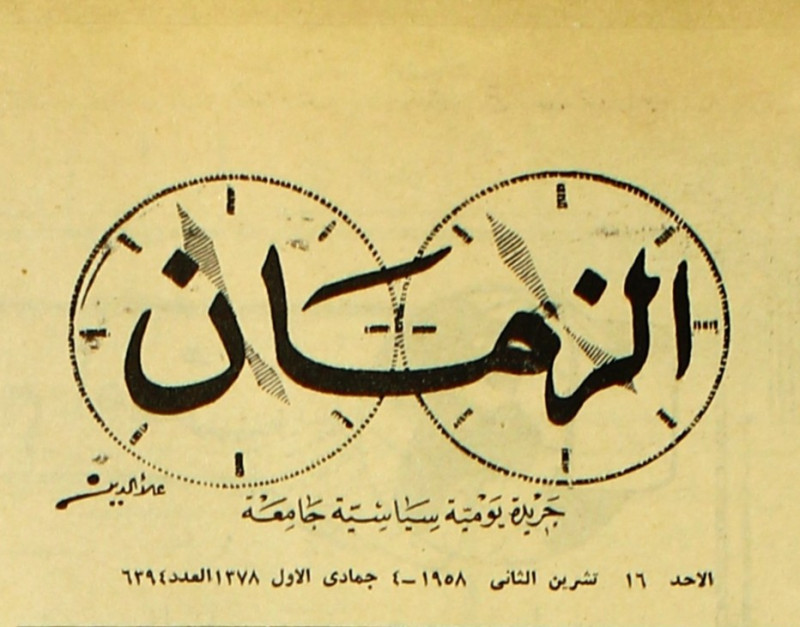 الزمان
علاءالدين
جريدة يومية سياسية جامعة
الاحد ١٦ تشرين الثانى ١٩٥٨ – ٤ جمادى الاول ١٣٧٨ العدد ٦٣٩٤